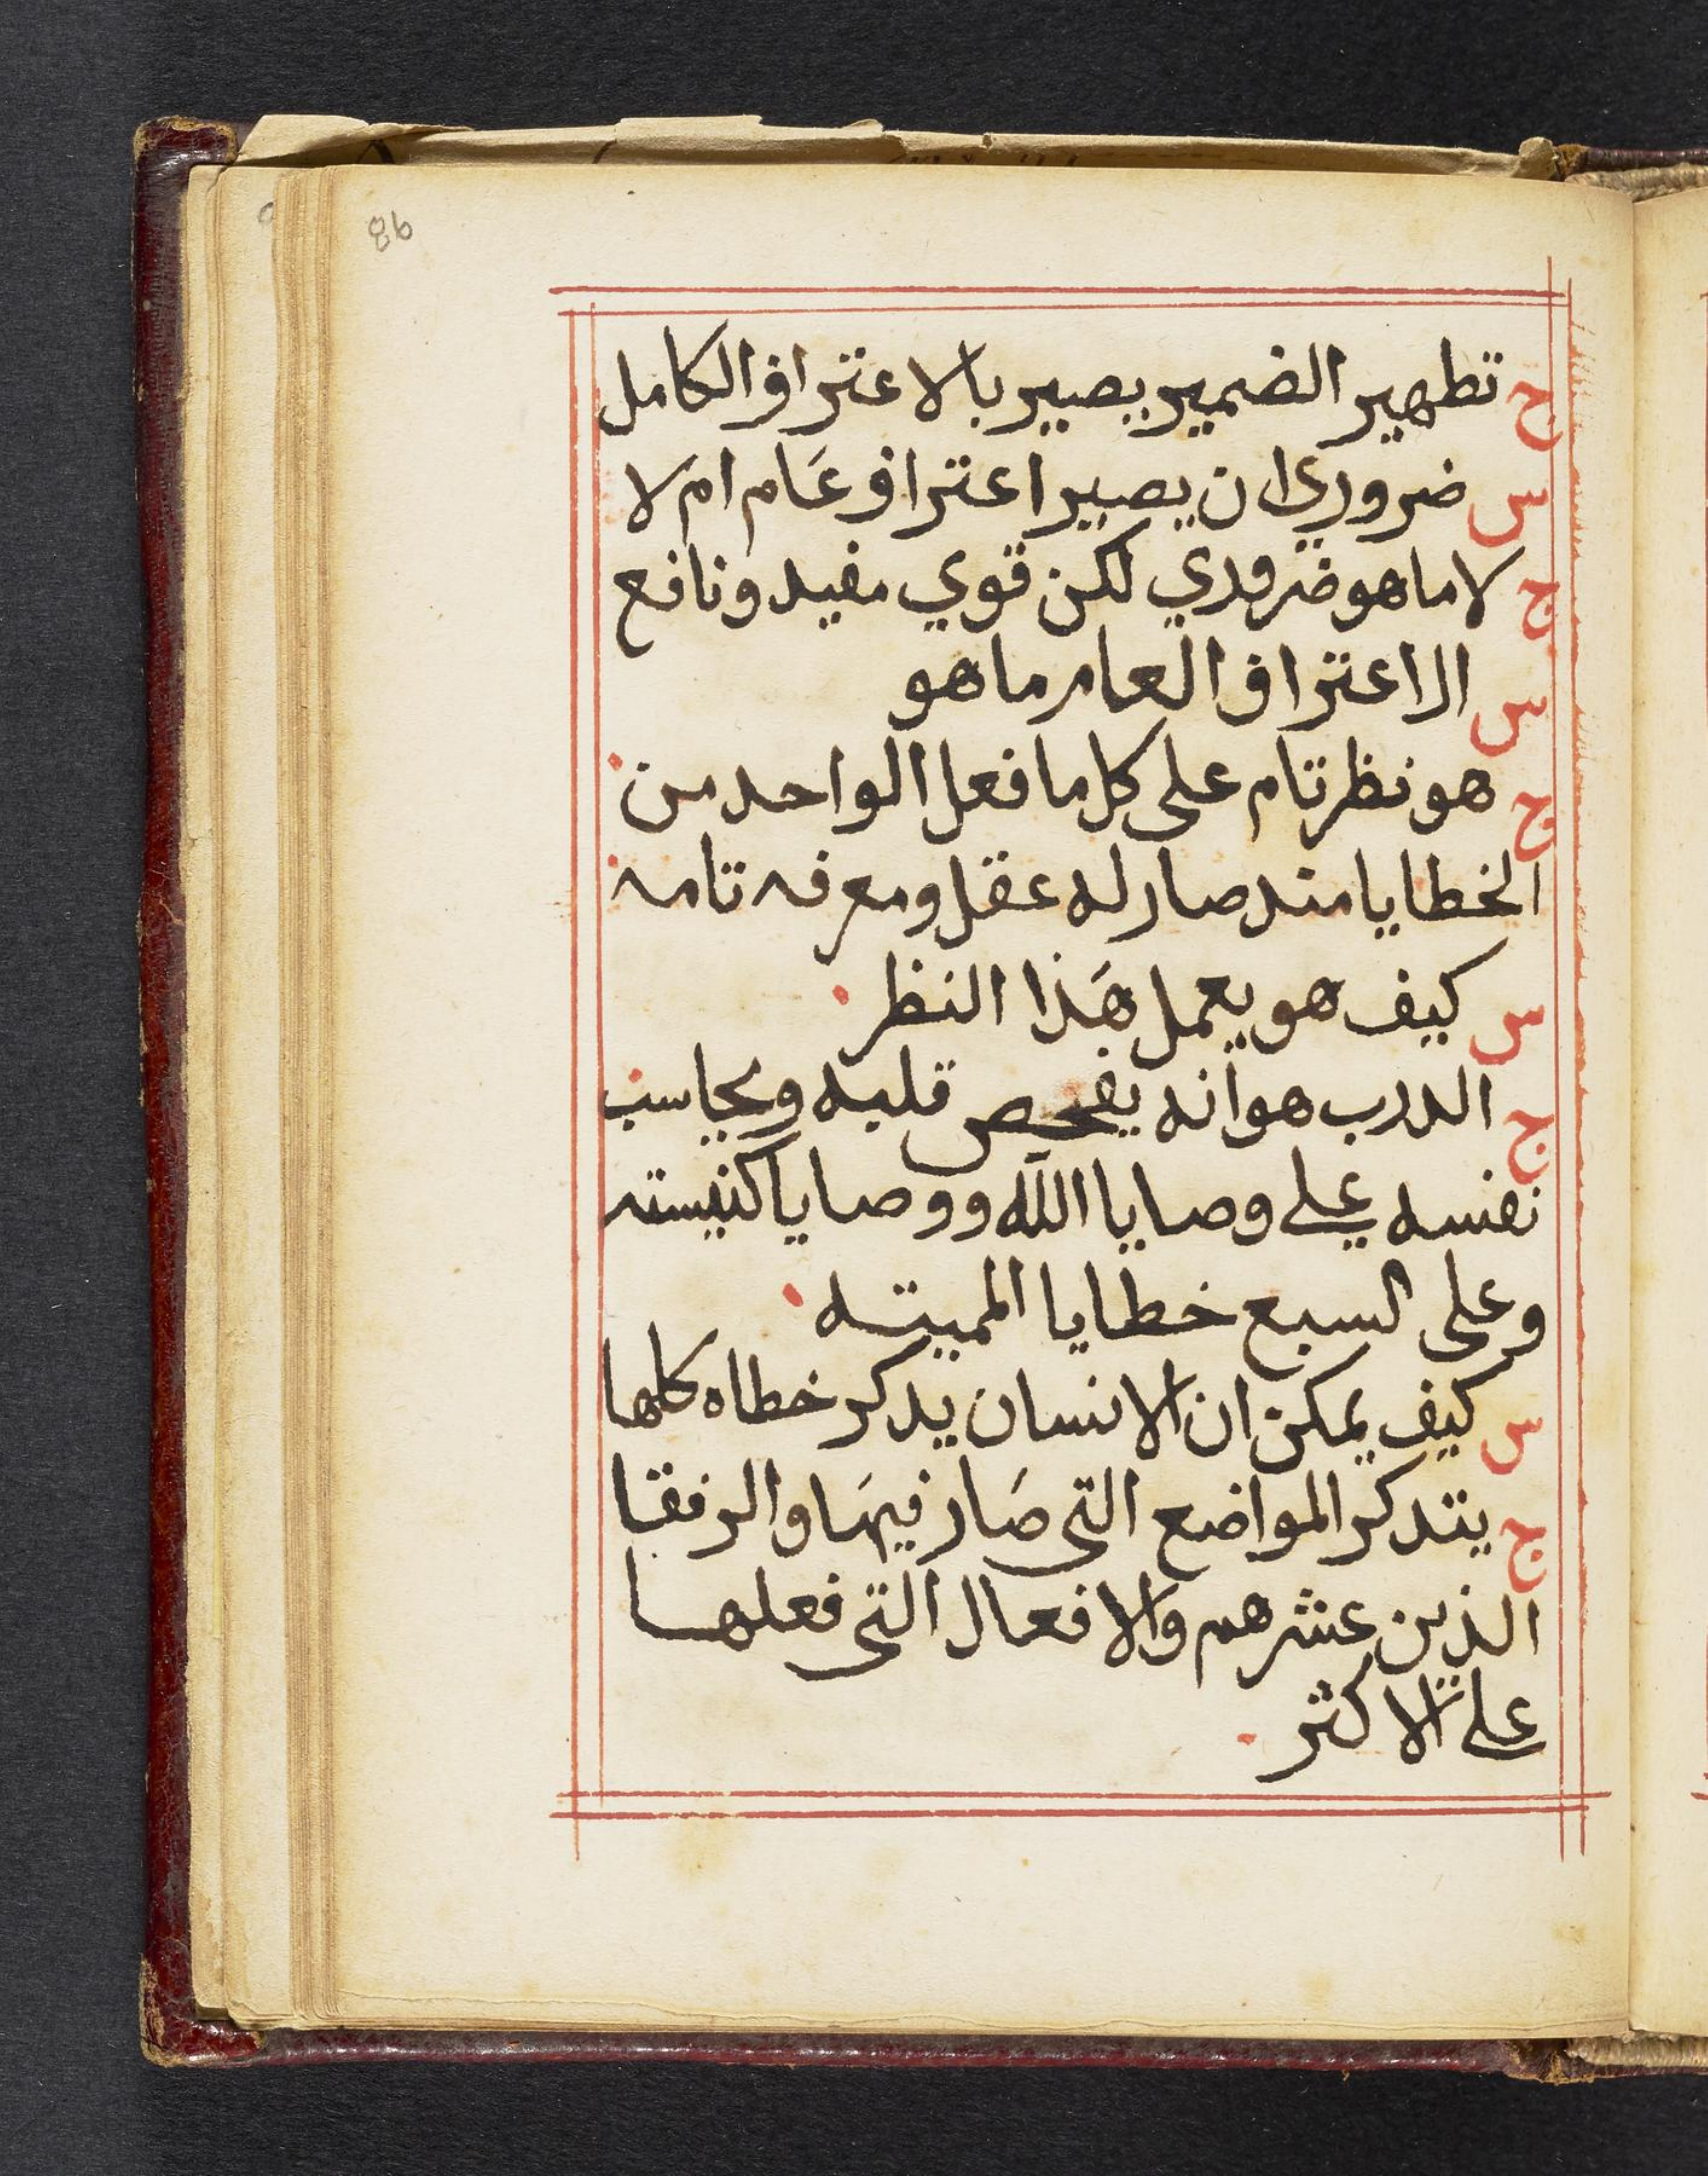 86
ج تطهير الضمير يصير بالاعتراف الكامل
س ضروري ان يصير اعتراف عَام امَ لا
ج لا ما هو ضروري لكن قوي مفيد ونافع
س الاعتراف العام ما هو
ج هو نظر تام على كل ما فعل الواحد من
الخطايا مند صار له عقل ومعرفه تامه
س كيف هو يعمل هَذا النظر
ج الدرب هو انه يفحص قلبه ويحاسب
نفسه على وصايا الله ووصايا كنيسته
وعلى السبع خطايا المميته
س كيف يمكن ان الانسان يدكر خطاه كلها
ج يتدكر المواضع التي صَار فيهَا والرفقا
الذين عشرهم والافعال التي فعلها
على الاكثر